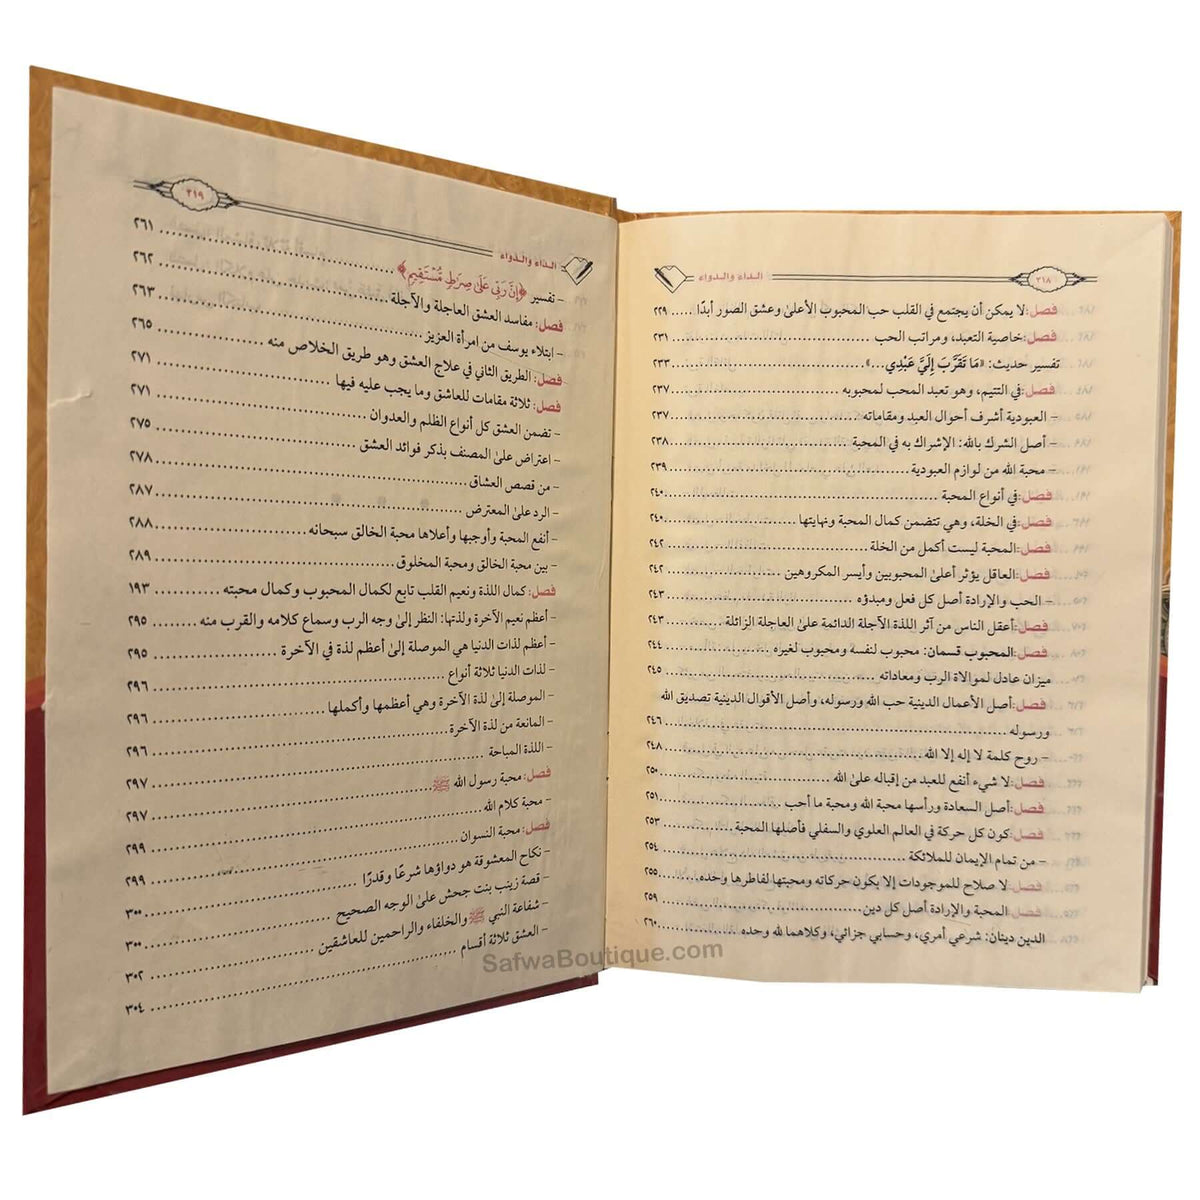 ٣١٨ الداء والدواء
فصل: لا يمكن أن يجتمع في القلب حب المحبوب الأعلىٰ وعشق الصور أبدًا ...... ٢٢٩
فصل: خاصية التعبد، ومراتب الحب ...... ٢٣١
تفسير حديث: «مَا تَقَرَّبَ إِلَيَّ عَبْدِي...» ...... ٢٣٣
فصل: في التتيم، وهو تعبد المحب لمحبوبه ...... ٢٣٧
– العبودية أشرف أحوال العبد ومقاماته ...... ٢٣٧
– أصل الشرك بالله: الإشراك به في المحبة ...... ٢٣٨
– محبة الله من لوازم العبودية ...... ٢٣٩
فصل: في أنواع المحبة ...... ٢٤٠
فصل: في الخلة، وهي تتضمن كمال المحبة ونهايتها ...... ٢٤٠
المحبة ليست أكمل من الخلة ...... ٢٤٢
فصل: العاقل يؤثر أعلىٰ المحبوبين وأيسر المكروهين ...... ٢٤٢
– الحب والإرادة أصل كل فعل ومبدؤه ...... ٢٤٣
فصل: أعقل الناس من آثر اللذة الآجلة الدائمة علىٰ العاجلة الزائلة ...... ٢٤٣
فصل: المحبوب قسمان: محبوب لنفسه ومحبوب لغيره ...... ٢٤٤
ميزان عادل لموالاة الرب ومعاداته ...... ٢٤٥
فصل: أصل الأعمال الدينية حب الله ورسوله، وأصل الأقوال الدينية تصديق الله
ورسوله ...... ٢٤٦
– روح كلمة لا إله إلا الله ...... ٢٤٨
فصل: لا شيء أنفع للعبد من إقباله علىٰ الله ...... ٢٥٠
فصل: أصل السعادة ورأسها محبة الله ومحبة ما أحب ...... ٢٥١
فصل: كون كل حركة في العالم العلوي والسفلي فأصلها المحبة ...... ٢٥٣
– من تمام الإيمان للملائكة ...... ٢٥٤
فصل: لا صلاح للموجودات إلا يكون حركاته ومحبتها لفاطرها وحده ...... ٢٥٥
فصل: المحبة والإرادة أصل كل دين ...... ٢٥٩
الدين دينان: شرعي أمري، وحسابي جزائي، وكلاهما لله وحده ...... ٢٦٠
الداء والدواء ٣١٩
– تفسير ﴿إِنَّ رَبِّي عَلَىٰ صِرَاطٍ مُّسْتَقِيمٍ﴾ ...... ٢٦١
فصل: مفاسد العشق العاجلة والآجلة ...... ٢٦٢
– ابتلاء يوسف من امرأة العزيز ...... ٢٦٣
فصل: الطريق الثاني في علاج العشق وهو طريق الخلاص منه ...... ٢٦٥
فصل: ثلاثة مقامات للعاشق وما يجب عليه فيها ...... ٢٧١
– تضمن العشق كل أنواع الظلم والعدوان ...... ٢٧١
– اعتراض علىٰ المصنف بذكر فوائد العشق ...... ٢٧٥
– من قصص العشاق ...... ٢٧٨
– الرد علىٰ المعترض ...... ٢٨٧
– أنفع المحبة وأوجبها وأعلاها محبة الخالق سبحانه ...... ٢٨٨
– بين محبة الخالق ومحبة المخلوق ...... ٢٨٩
فصل: كمال اللذة ونعيم القلب تابع لكمال المحبوب وكمال محبته ...... ١٩٣
– أعظم نعيم الآخرة ولذتها: النظر إلىٰ وجه الرب وسماع كلامه والقرب منه ...... ٢٩٥
– أعظم لذات الدنيا هي الموصلة إلىٰ أعظم لذة في الآخرة ...... ٢٩٥
– لذات الدنيا ثلاثة أنواع ...... ٢٩٦
– الموصلة إلىٰ لذة الآخرة وهي أعظمها وأكملها ...... ٢٩٦
– المانعة من لذة الآخرة ...... ٢٩٦
– اللذة المباحة ...... ٢٩٧
فصل: محبة رسول الله ﷺ ...... ٢٩٧
– محبة كلام الله ...... ٢٩٩
فصل: محبة النسوان ...... ٢٩٩
– نكاح المعشوقة هو دواؤها شرعًا وقدرًا ...... ٣٠٠
– قصة زينب بنت جحش علىٰ الوجه الصحيح ...... ٣٠٠
– شفاعة النبي ﷺ والخلفاء والراحمين للعاشقين ...... ٣٠٢
– العشق ثلاثة أقسام ...... ٣٠٤
SafwaBoutique.com